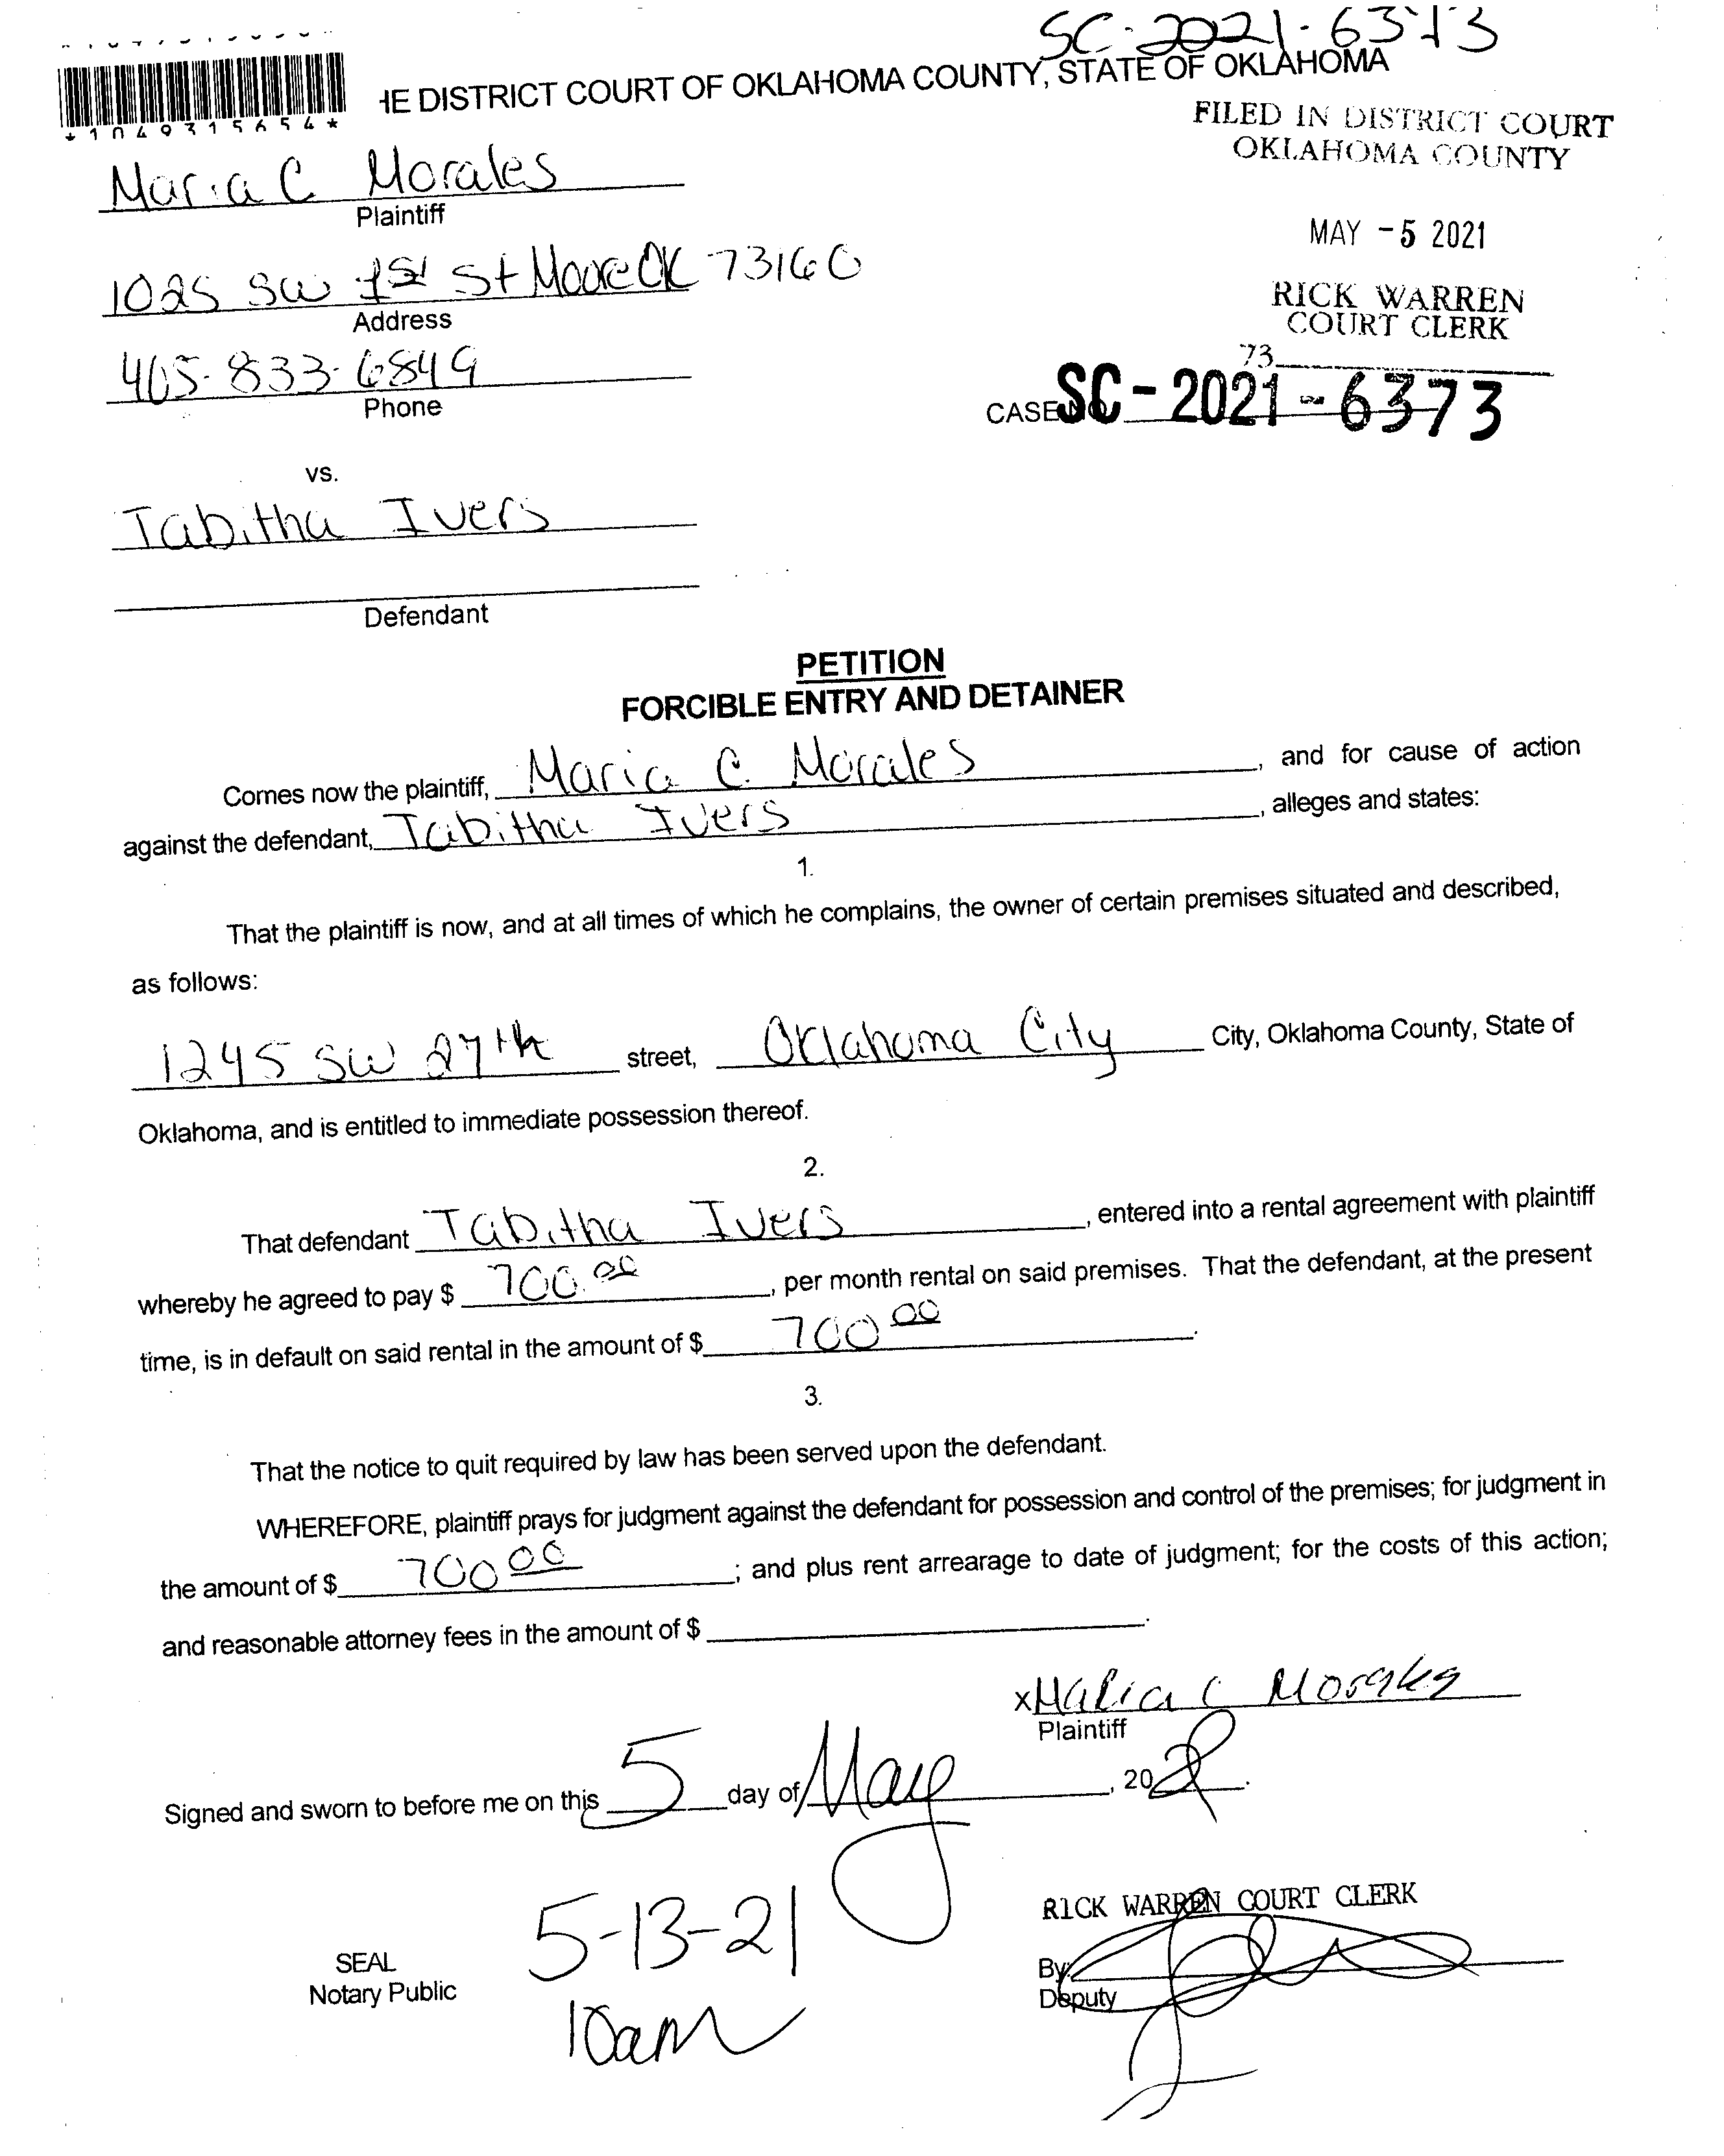 SC-2021-6373
HE DISTRICT COURT OF OKLAHOMA COUNTY, STATE OF OKLAHOMA
*1049315654*
FILED IN DISTRICT COURT
OKLAHOMA COUNTY
Maria C Morales
Plaintiff
MAY -5 2021
1025 SW 1st St Moore OK 73160
Address
RICK WARREN
COURT CLERK
405-833-6849
Phone
73
CASE NO. SC-2021-6373
vs.
Tabitha Ivers
Defendant
PETITION
FORCIBLE ENTRY AND DETAINER
Comes now the plaintiff, Maria C. Morales, and for cause of action
against the defendant, Tabitha Ivers, alleges and states:
1.
That the plaintiff is now, and at all times of which he complains, the owner of certain premises situated and described,
as follows:
1245 SW 27th street, Oklahoma City City, Oklahoma County, State of
Oklahoma, and is entitled to immediate possession thereof.
2.
That defendant Tabitha Ivers, entered into a rental agreement with plaintiff
whereby he agreed to pay $ 700.00, per month rental on said premises. That the defendant, at the present
time, is in default on said rental in the amount of $ 700 00.
3.
That the notice to quit required by law has been served upon the defendant.
WHEREFORE, plaintiff prays for judgment against the defendant for possession and control of the premises; for judgment in
the amount of $ 700 00; and plus rent arrearage to date of judgment; for the costs of this action;
and reasonable attorney fees in the amount of $ .
x Maria C Morales
Plaintiff
Signed and sworn to before me on this 5 day of May, 2021.
5-13-21
10am
SEAL
Notary Public
RICK WARREN COURT CLERK
By:
Deputy